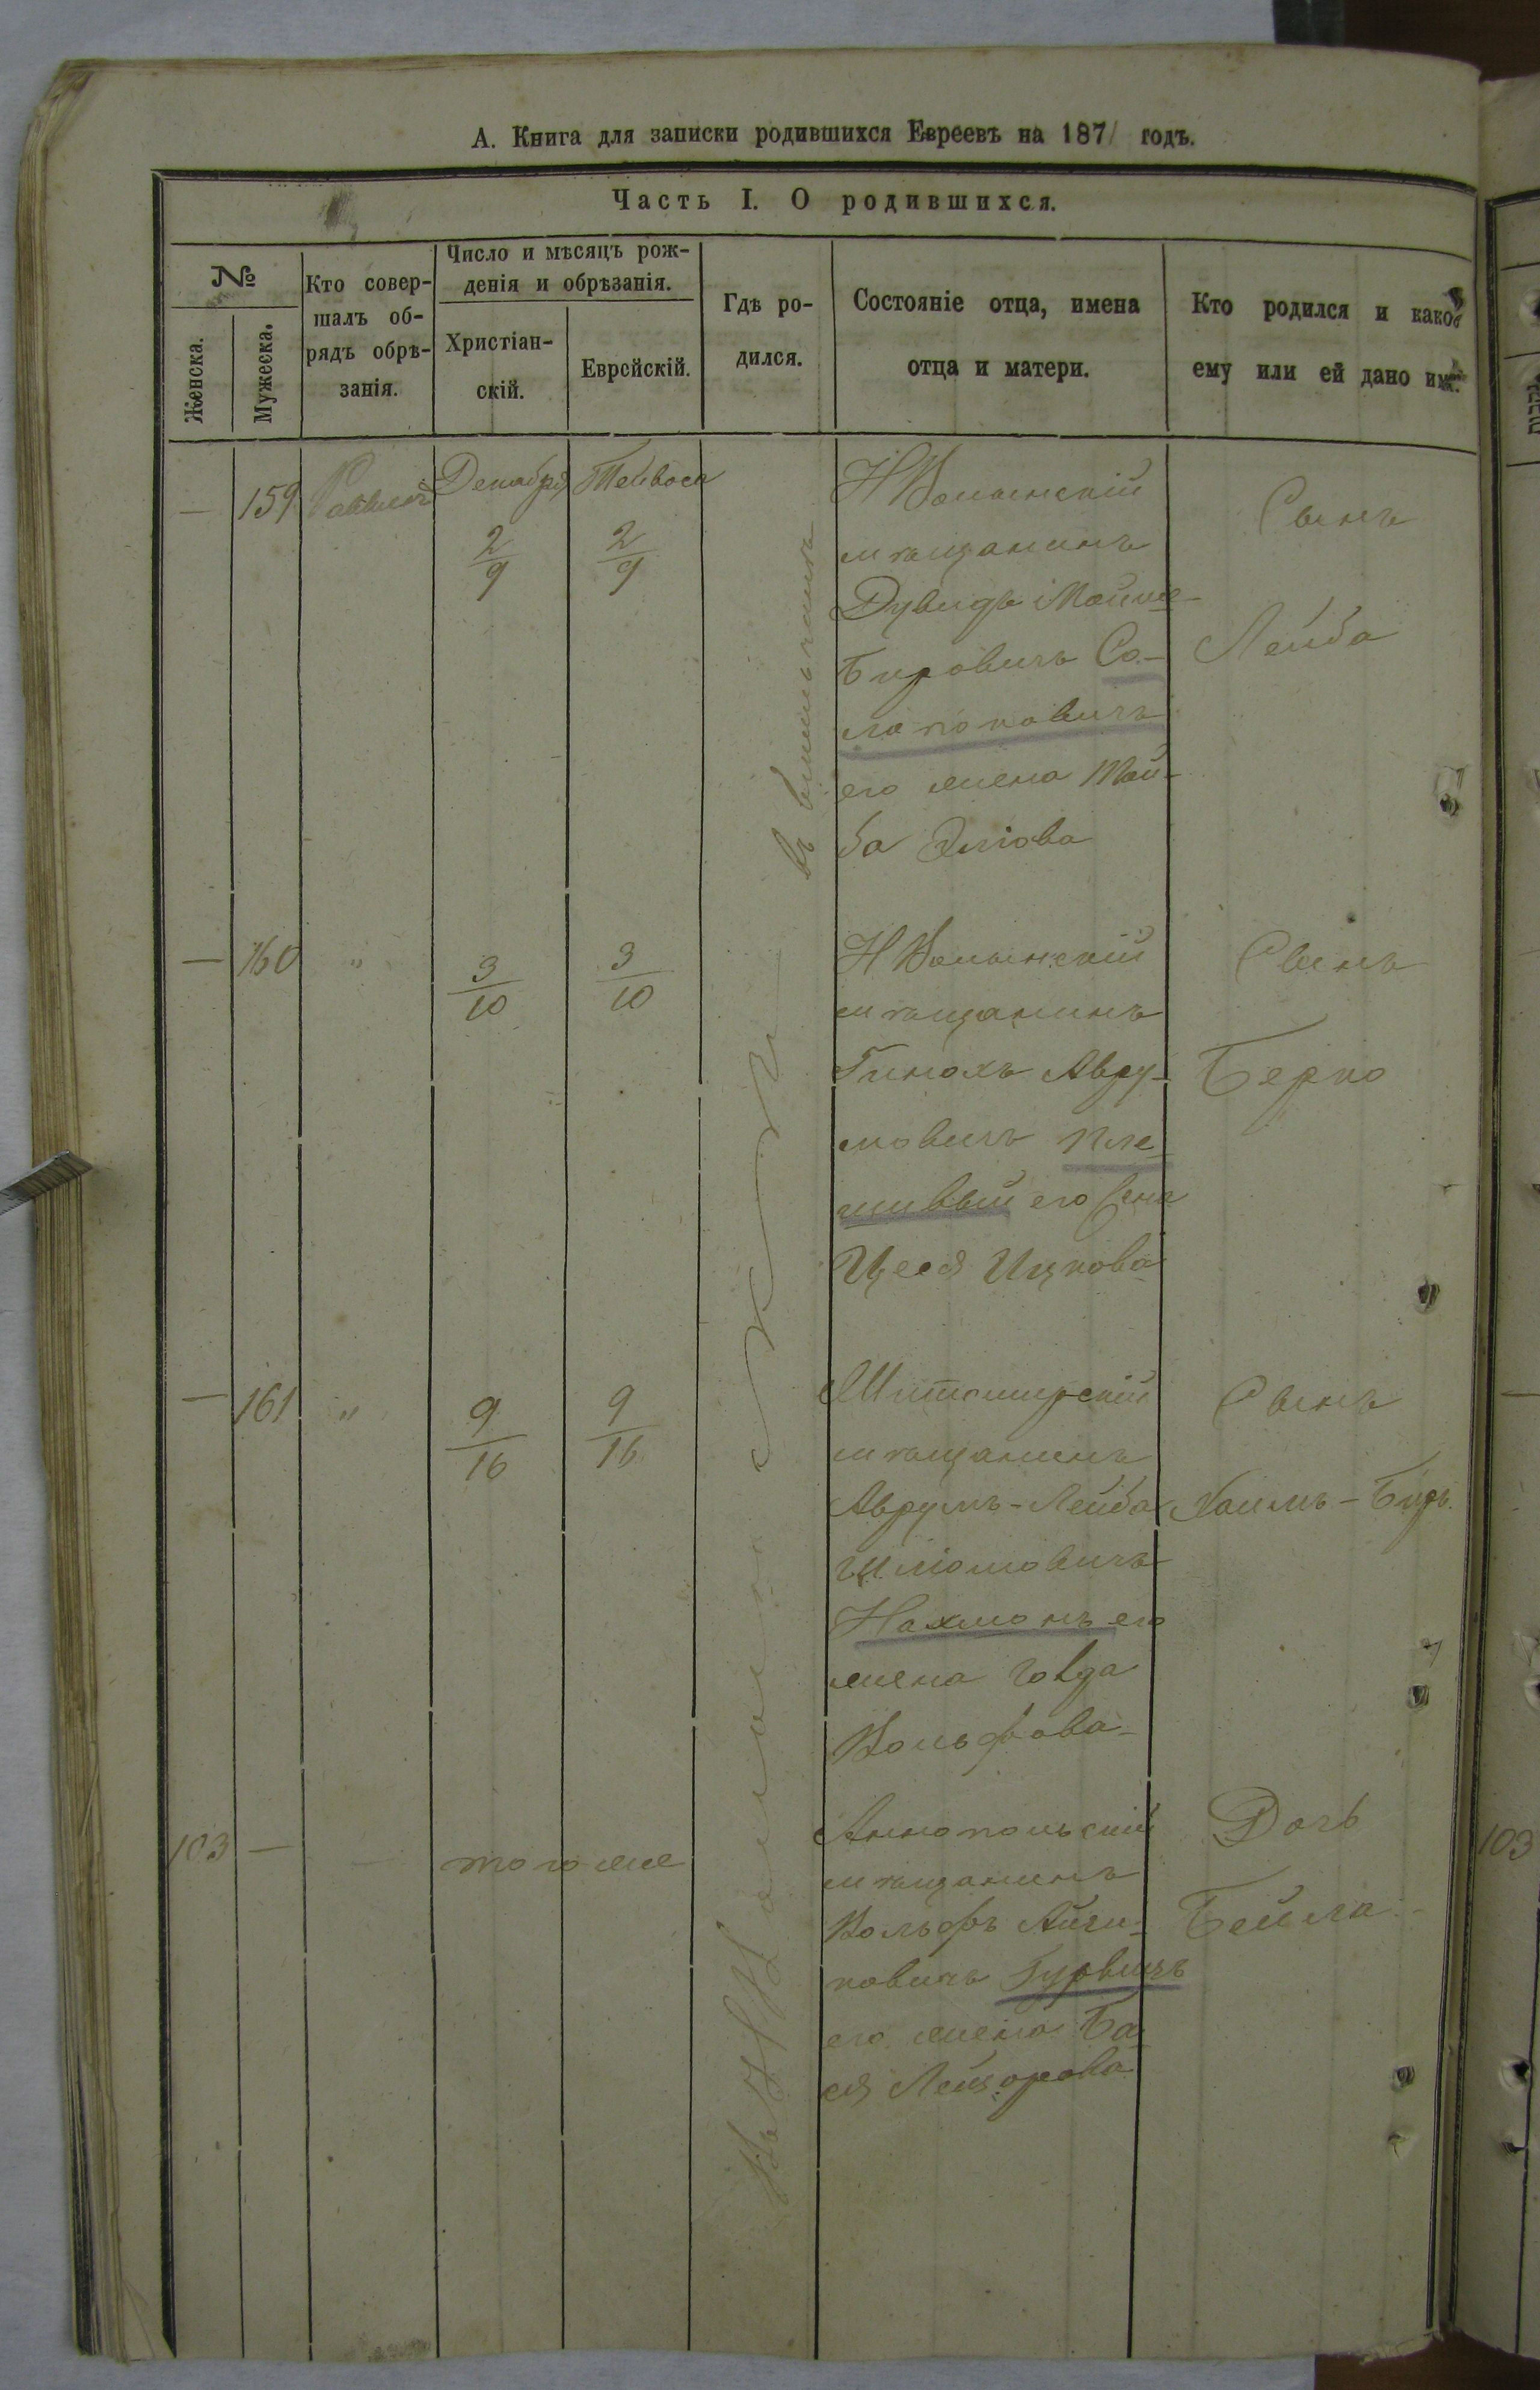 А. Книга для записки родившихся Евреевъ на 1871 годъ.
Часть I. О родившихся.
№
Женска.
Мужеска.
Кто совер-
шалъ об-
рядъ обрѣ-
занія.
Число и мѣсяцъ рож-
денія и обрѣзанія.
Христіан-
скій.
Еврейскій.
Гдѣ ро-
дился.
Состояніе отца, имена
отца и матери.
Кто родился и какое
ему или ей дано имя.
— 159 Декабря Тейвоса
2/9 2/9
НВолынскій
мѣщанинъ
Дувидъ Мошко-
Бировичъ Со-
лапоновичъ
его жена
ба
Сынъ
Лейба
— 160 " 3/10 3/10
НВолынскій
мѣщанинъ
Гинохъ Авру-
мовичъ Пле-
шивый его жена
Цеся Ицкова
Сынъ
Берко
— 161 " 9/16 9/16
Житомирскій
мѣщанинъ
Аврумъ-Лейба
Шліомовичъ
Нахманъ его
жена
Вольфова
Сынъ
Хаимъ-Биръ.
103 — — того же
Аннопольскій
мѣщанинъ
Вольфъ Айзи-
ковичъ Гурвичъ
его жена Ба-
ся Лейзорова
Дочь
Бейла
103